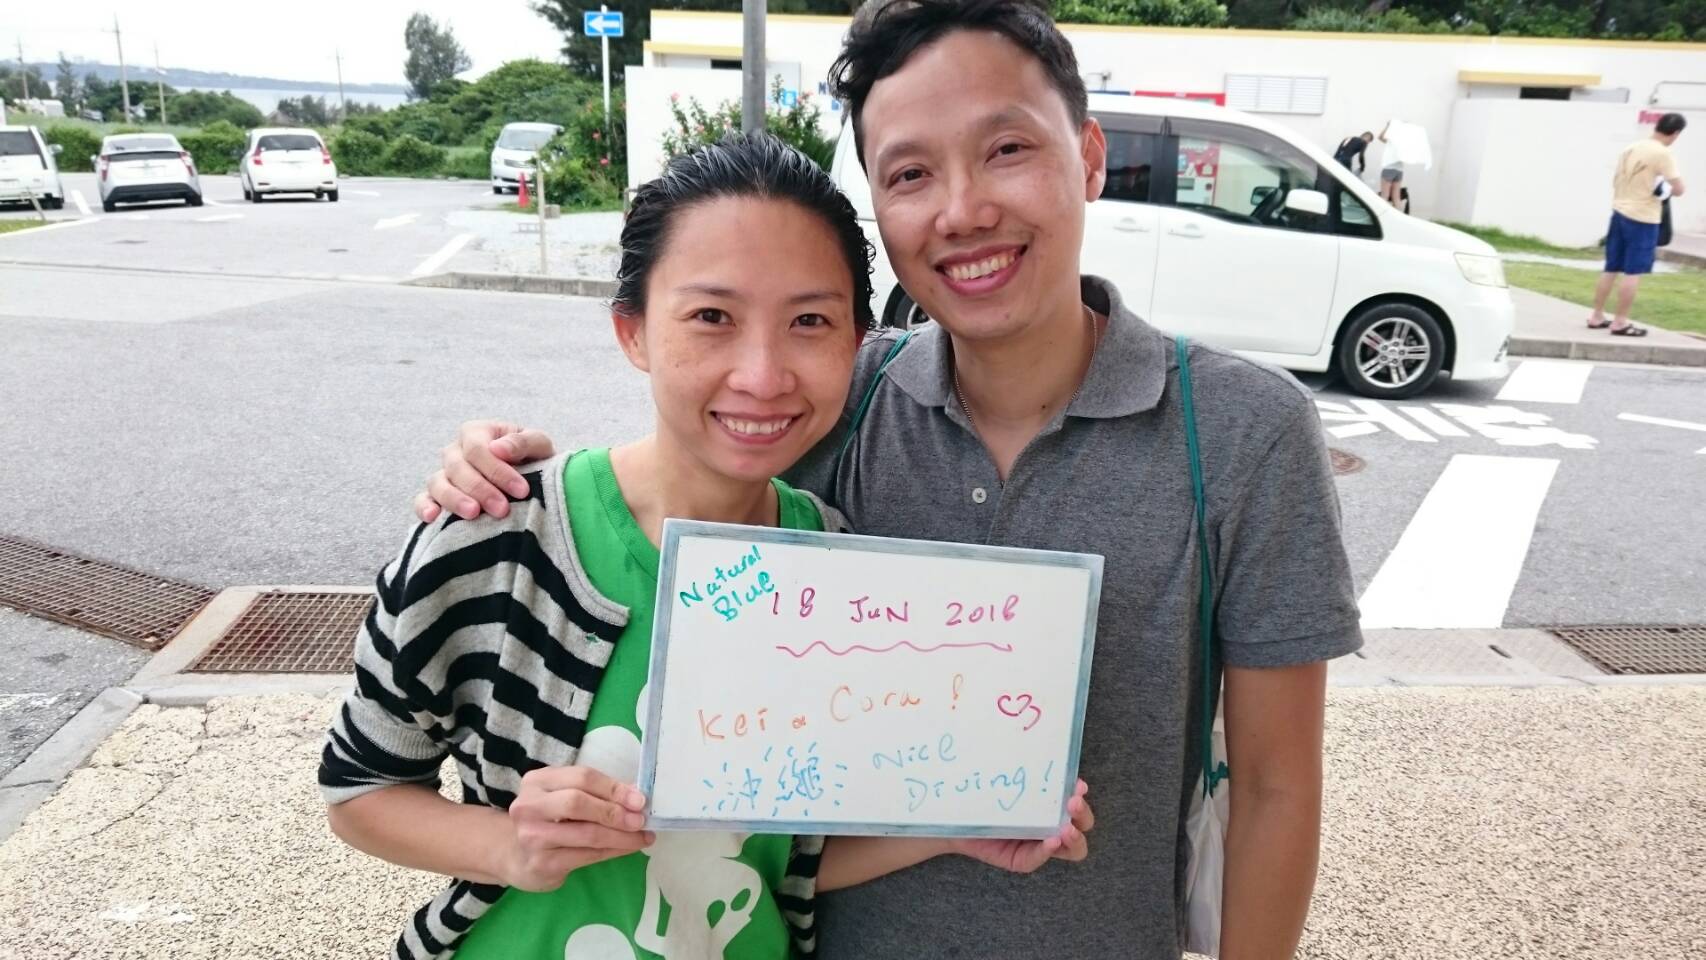 Natural
Blue
18 JUN 2018
Kei & Cora!
沖縄 Nice
Diving!